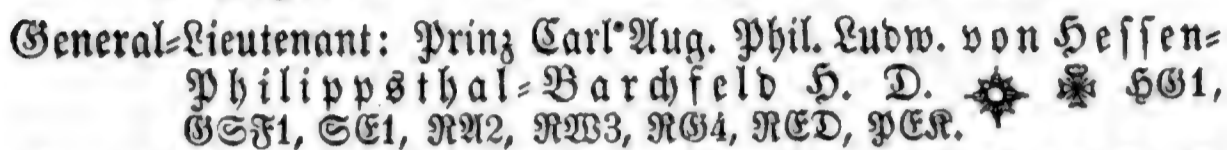 General-Lieutenant: Prinz Carl Aug. Phil. Ludw. von Hessen-
Philippsthal-Barchfeld H. D. HG1,
GSF1, SE1, RA2, RW3, RG4, RED, PEK.